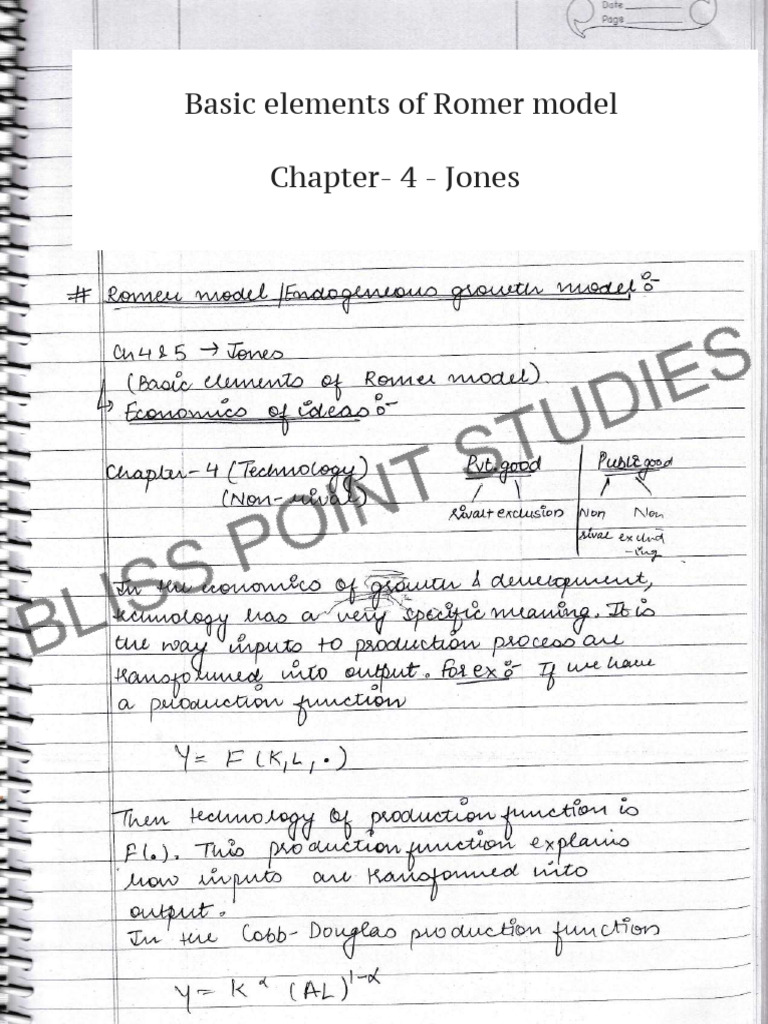 Date
Page
Basic elements of Romer model
Chapter- 4 - Jones
# Romer model / Endogeneous growth model :-
Ch 4 & 5 → Jones
(Basic elements of Romer model).
↳ Economics of ideas :-
Chapter - 4 (Technology)
(Non-rival)
Pvt. good
rival + exclusion
Public good
Non rival
Non excluding
BLISS POINT STUDIES
In the economics of growth & development,
technology has a very specific meaning. It is
the way inputs to production process are
transformed into output. For ex :- If we have
a production function
Y = F (K, L, •)
Then technology of production function is
F(.). This production function explains
how inputs are transformed into
output.
In the Cobb-Douglas production function
Y = K^α (AL)^1-α